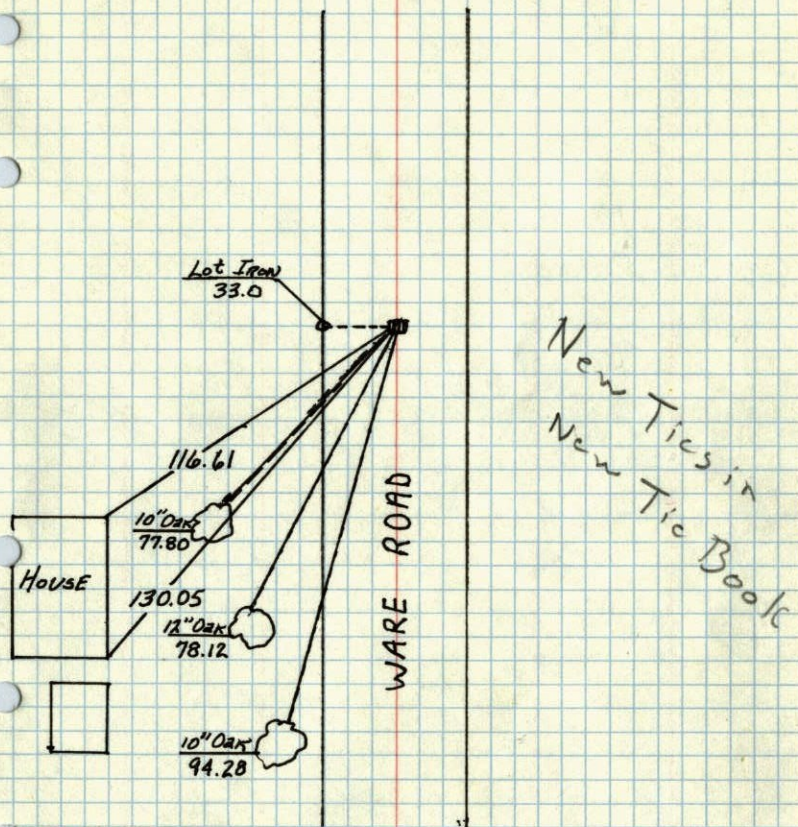 Lot Iron
33.0
116.61
10" Oak
77.80
HOUSE
130.05
12" Oak
78.12
10" Oak
94.28
WARE ROAD
New Ties in
New Tie Book